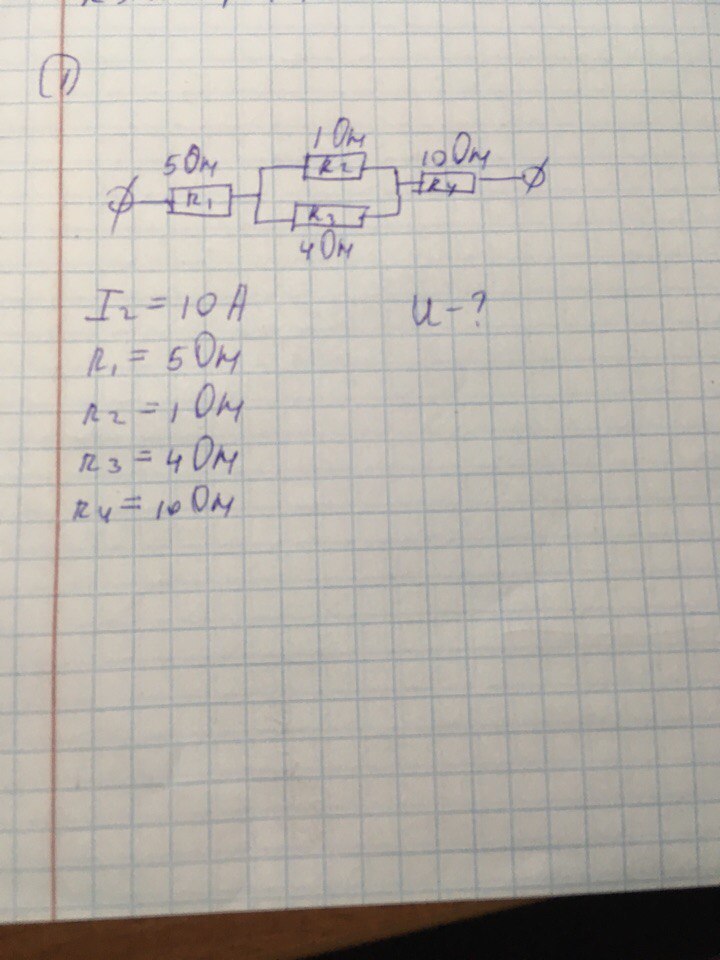 1
5 Ом
1 Ом
10 Ом
R1
R2
R3
R4
4 Ом
I2 = 10 А
U - ?
R1 = 5 Ом
R2 = 1 Ом
R3 = 4 Ом
R4 = 10 Ом